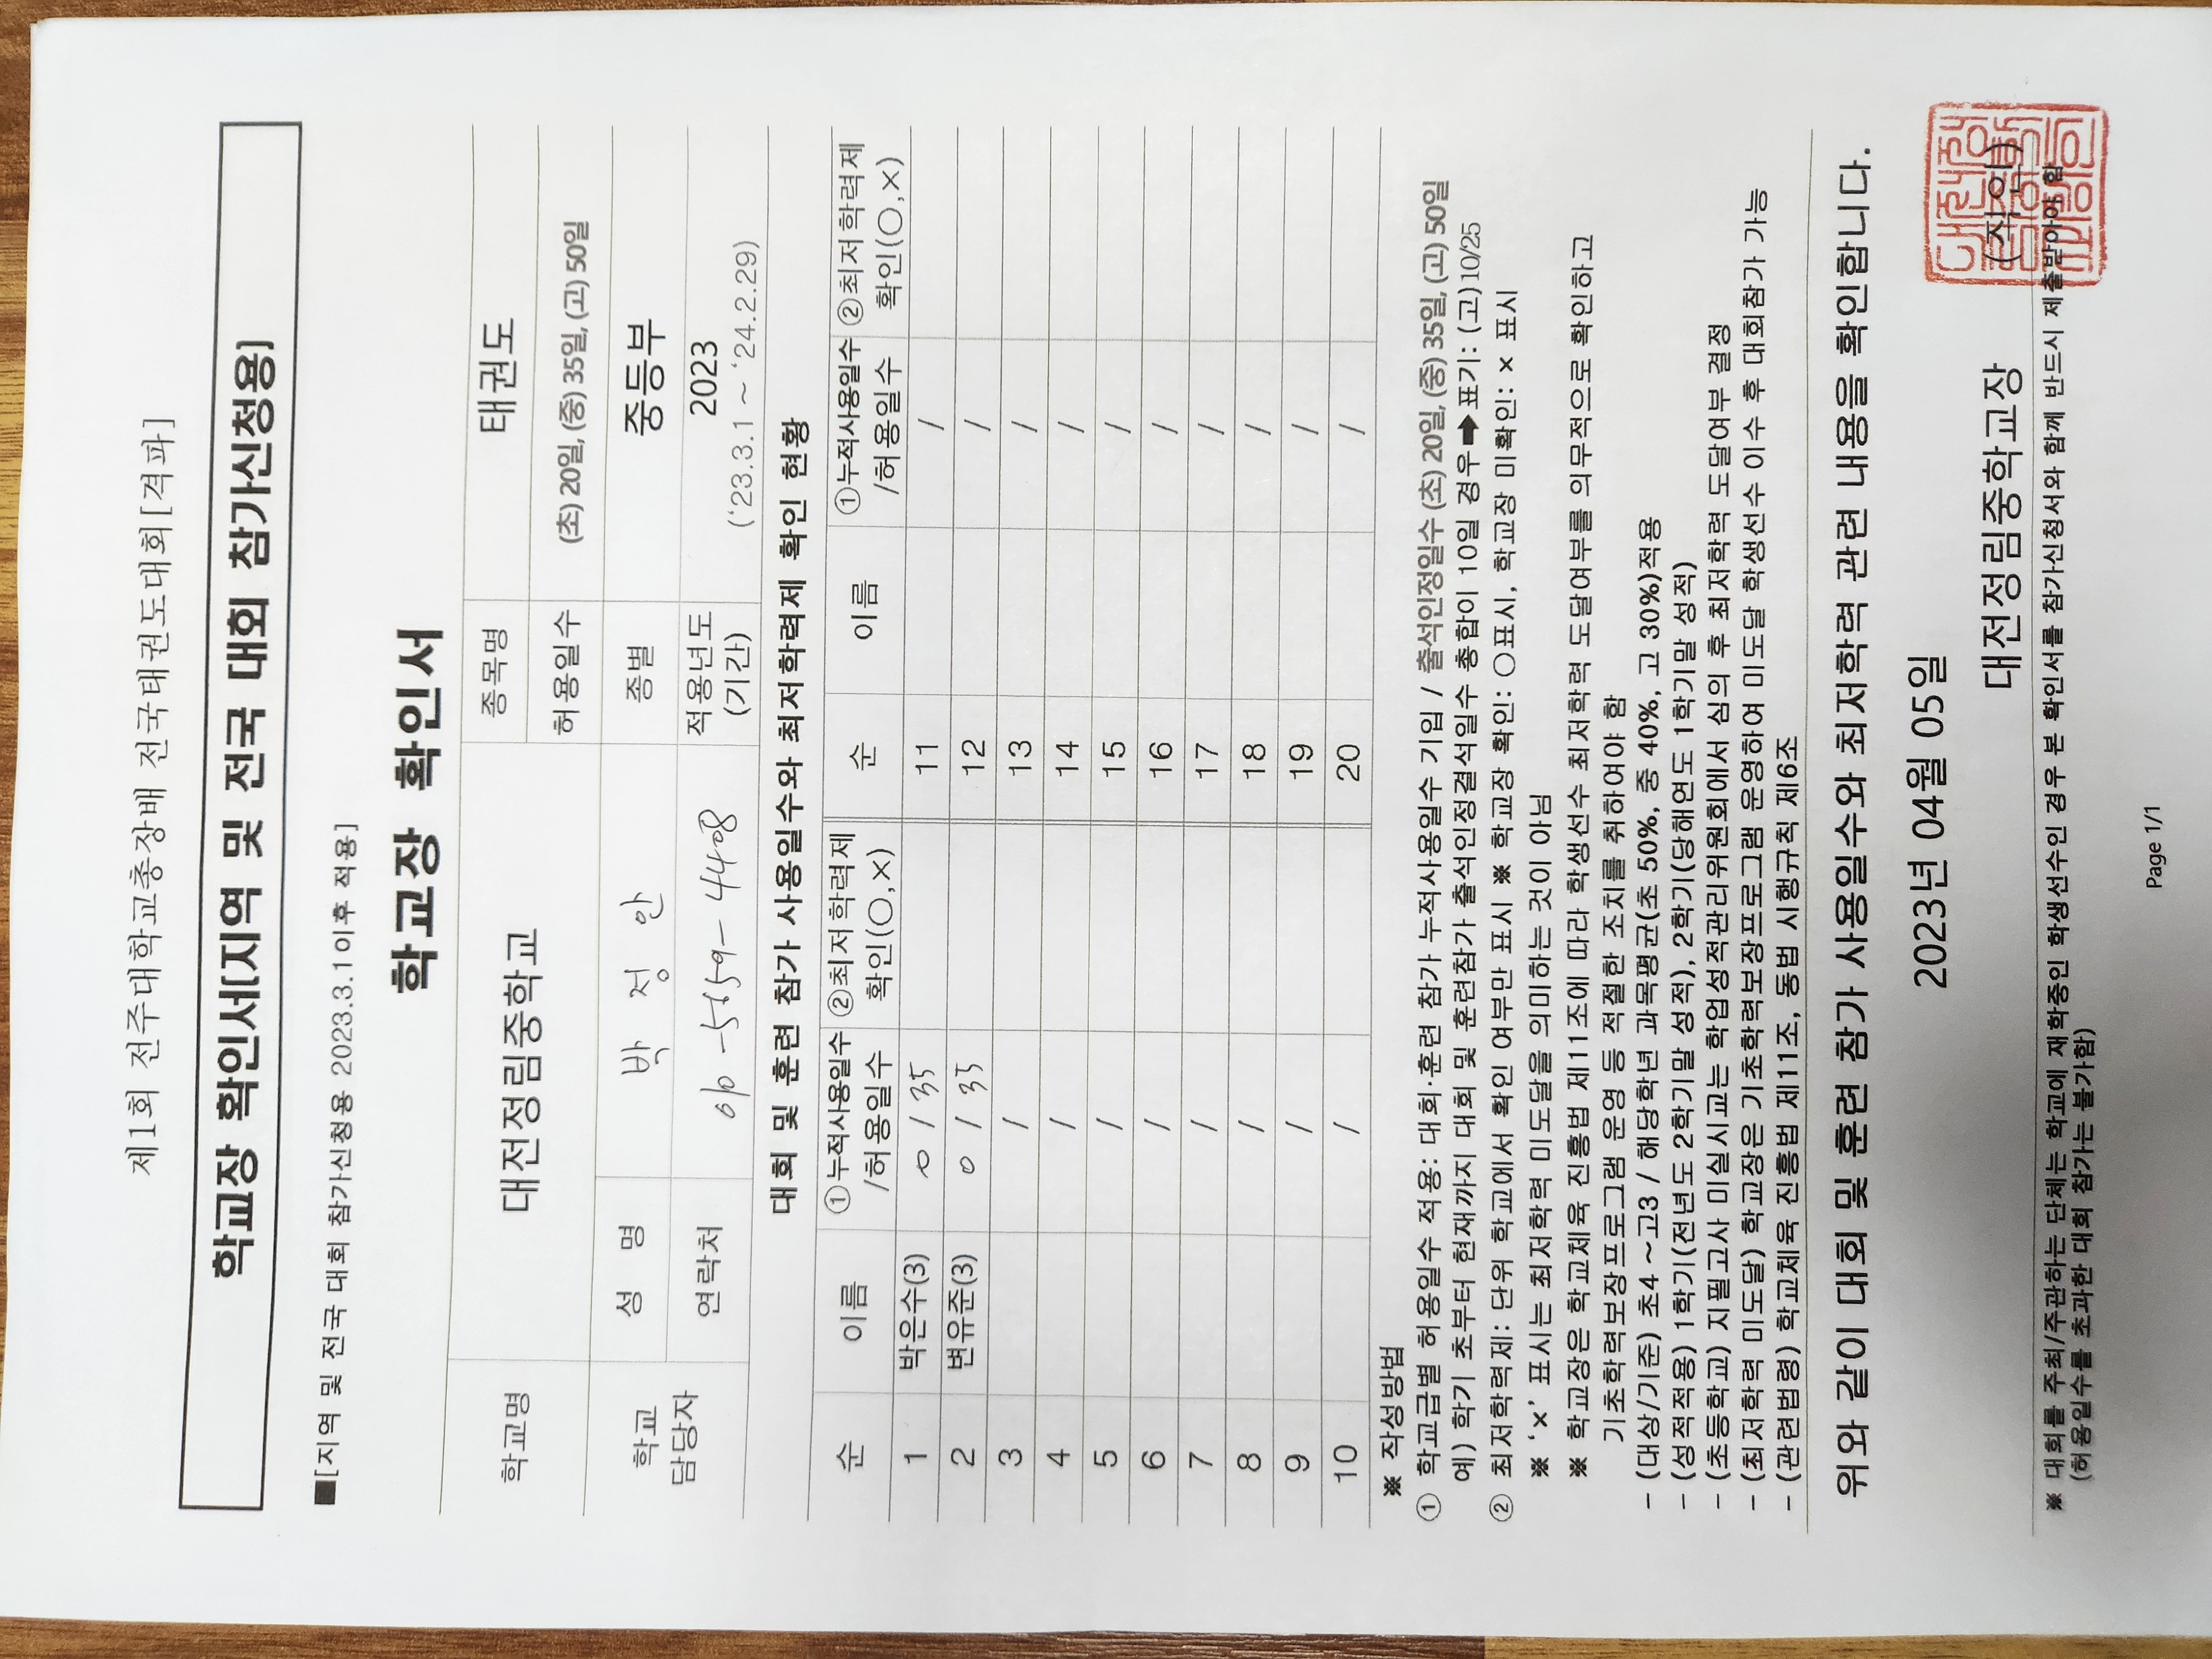 제1회 전주대학교총장배 전국태권도대회[격파]
학교장 확인서[지역 및 전국 대회 참가신청용]
■[지역 및 전국 대회 참가신청용 2023.3.1이후 적용]
학교장 확인서
학교명 대전정림중학교 종목명 태권도
허용일수 (초) 20일, (중) 35일, (고) 50일
학교 담당자 성 명 박 정 안 종별 중등부
연락처 010-5559-4408 적용년도 (기간) 2023 ('23.3.1 ~ '24.2.29)
대회 및 훈련 참가 사용일수와 최저학력제 확인 현황
순 이름 ①누적사용일수 /허용일수 ②최저학력제 확인(○,×) 순 이름 ①누적사용일수 /허용일수 ②최저학력제 확인(○,×)
1 박은수(3) 0 / 35 11 /
2 변유준(3) 0 / 35 12 /
3 / 13 /
4 / 14 /
5 / 15 /
6 / 16 /
7 / 17 /
8 / 18 /
9 / 19 /
10 / 20 /
※ 작성방법
① 학교급별 허용일수 적용: 대회·훈련 참가 누적사용일수 기입 / 출석인정일수 (초) 20일, (중) 35일, (고) 50일
예) 학기 초부터 현재까지 대회 및 훈련참가 출석인정결석일수 총합이 10일 경우 ➡표기: (고) 10/25
② 최저학력제: 단위 학교에서 확인 여부만 표시 ※ 학교장 확인: ○표시, 학교장 미확인: × 표시
※ '×' 표시는 최저학력 미도달을 의미하는 것이 아님
※ 학교장은 학교체육 진흥법 제11조에 따라 학생선수 최저학력 도달여부를 의무적으로 확인하고
기초학력보장프로그램 운영 등 적절한 조치를 취하여야 함
- (대상/기준) 초4 ~고3 / 해당학년 과목평균(초 50%, 중 40%, 고 30%)적용
- (성적적용) 1학기(전년도 2학기말 성적), 2학기(당해연도 1학기말 성적)
- (초등학교) 지필고사 미실시교는 학업성적관리위원회에서 심의 후 최저학력 도달여부 결정
- (최저학력 미도달) 학교장은 기초학력보장프로그램 운영하여 미도달 학생선수 이수 후 대회참가 가능
- (관련법령) 학교체육 진흥법 제11조, 동법 시행규칙 제6조
위와 같이 대회 및 훈련 참가 사용일수와 최저학력 관련 내용을 확인합니다.
2023년 04월 05일
대전정림중학교장 (직인)
※ 대회를 주최/주관하는 단체는 학교에 재학중인 학생선수인 경우 본 확인서를 참가신청서와 함께 반드시 제출받아야 함
(허용일수를 초과한 대회 참가는 불가함)
Page 1/1